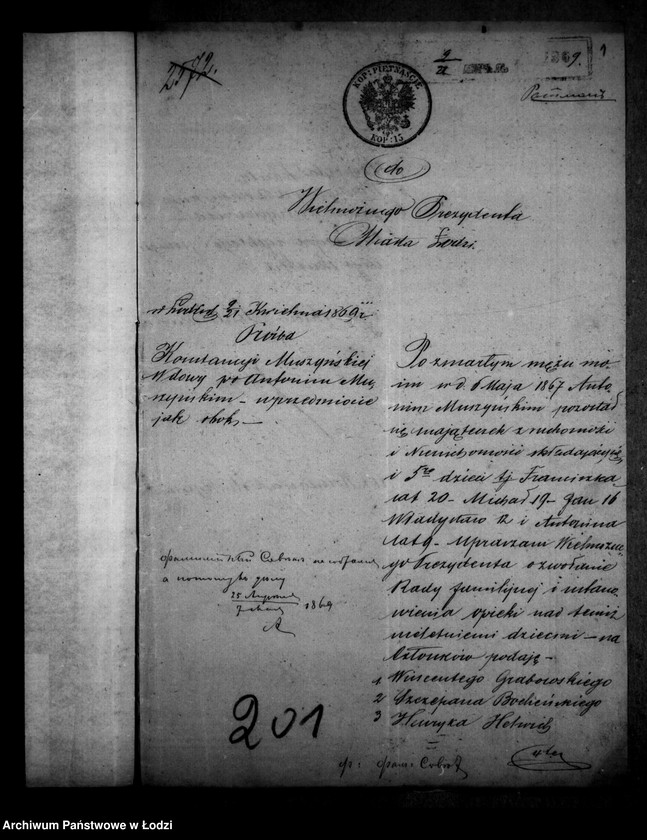 2572.
9/21
9.
1
KOP: PIĘTNAŚCIE
КОП: 15
do
Wielmożnego Prezydenta
Miasta Łodzi.
9/21 Kwietnia 1869 r
Prośba
Konstancyi Muszyńskiej
Wdowy po Antonim Mu-
szyńskim – w przedmiocie
jak obok –
Po zmarłym mężu mo-
im w d. 6 Maja 1867 Anto-
nim Muszyńskim pozostał
się mająteczek z ruchomości
i Nieruchomości składający się
i 5ro dzieci tj Franciszka
lat 20 – Michał 19 – Jan 16
Władysław 12 i Antonina
lat 9 – Upraszam Wielmożne-
go Prezydenta o zwołanie
Rady familijnej i ustano-
wienia opieki nad temiż
małoletniemi dziećmi – na
Członków podaję –
1 Wincentego Grabowskiego
2 Szczepana Bocheńskiego
3 Henryka Helwich
1869
201
Archiwum Państwowe w Łodzi